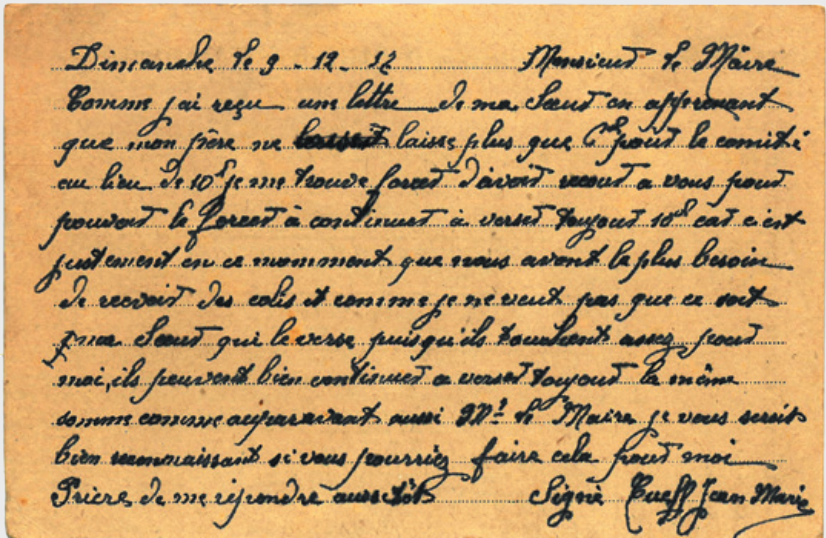 Dimanche le 9 - 12 - 17 Monsieur le Maire
Comme jai reçu une lettre de ma Sœur en apprenant
que mon père ne laisse plus que pour le comité
au lieu de 10f je me trouve forcer d'avoir recourt a vous pour
pouvoir le forcer à continuer à verser toujour 10f car c'est
justement en ce momment que nous avont le plus besoin
de recevoir des colis et comme je ne veut pas que ce soit
ma Sœur qui le verse puisqu'ils touchent assez pour
moi, ils peuvent bien continuer a verser toujour la même
somme comme auparavant aussi Mr le Maire je vous serait
bien reconnaissant si vous pourriez faire cela pour moi
Prière de me répondre aussitôt Signé Cueff Jean Marie